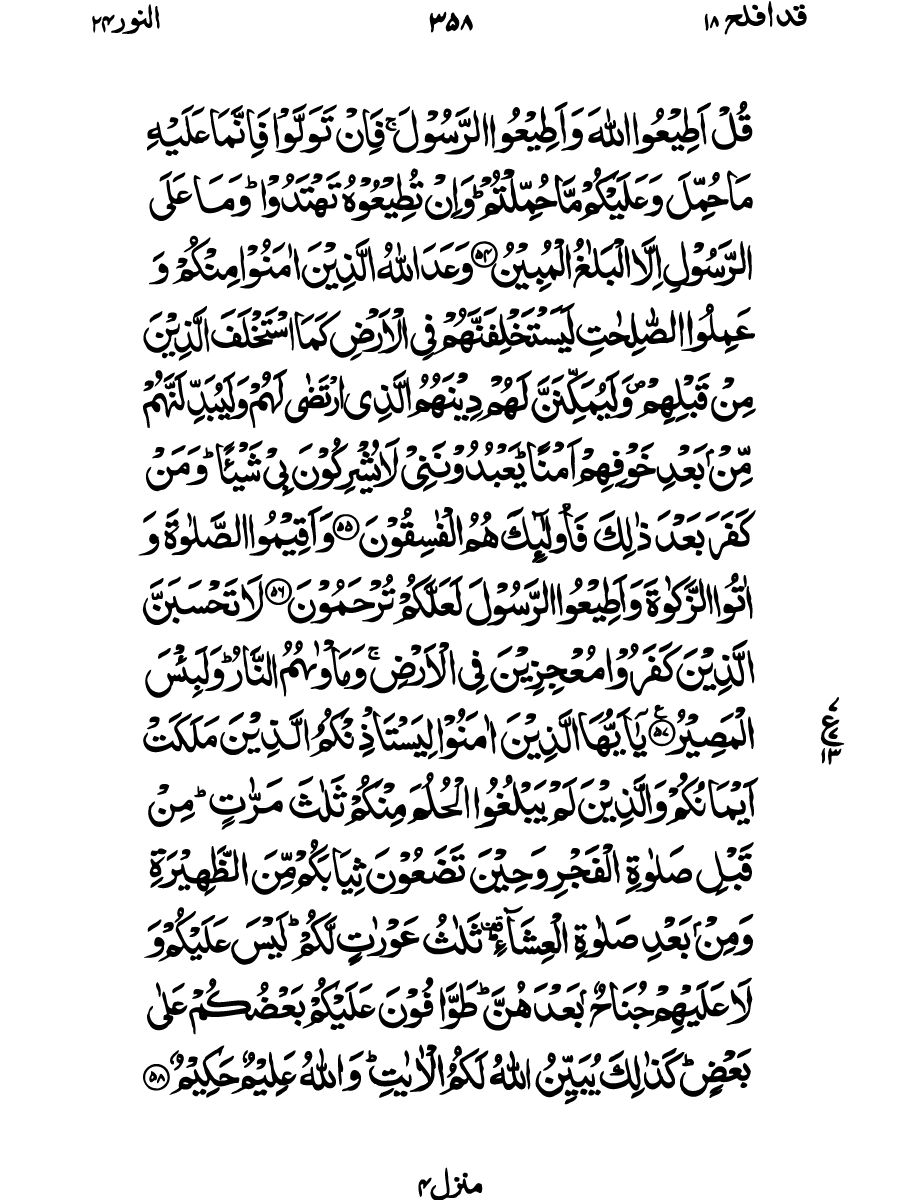 قد افلح ۱۸
۳۵۸
النور ۲۴
قُلْ اَطِيْعُوا اللّٰهَ وَ اَطِيْعُوا الرَّسُوْلَ ۚ فَاِنْ تَوَلَّوْا فَاِنَّمَا عَلَيْهِ
مَا حُمِّلَ وَ عَلَيْكُمْ مَّا حُمِّلْتُمْ ؕ وَ اِنْ تُطِيْعُوْهُ تَهْتَدُوْا ؕ وَ مَا عَلَى
الرَّسُوْلِ اِلَّا الْبَلٰغُ الْمُبِيْنُ ﴿۵۴﴾ وَعَدَ اللّٰهُ الَّذِيْنَ اٰمَنُوْا مِنْكُمْ وَ
عَمِلُوا الصّٰلِحٰتِ لَيَسْتَخْلِفَنَّهُمْ فِي الْاَرْضِ كَمَا اسْتَخْلَفَ الَّذِيْنَ
مِنْ قَبْلِهِمْ ۪ وَ لَيُمَكِّنَنَّ لَهُمْ دِيْنَهُمُ الَّذِي ارْتَضٰى لَهُمْ وَ لَيُبَدِّلَنَّهُمْ
مِّنْۢ بَعْدِ خَوْفِهِمْ اَمْنًا ؕ يَعْبُدُوْنَنِيْ لَا يُشْرِكُوْنَ بِيْ شَيْـًٔا ؕ وَ مَنْ
كَفَرَ بَعْدَ ذٰلِكَ فَاُولٰٓئِكَ هُمُ الْفٰسِقُوْنَ ﴿۵۵﴾ وَ اَقِيْمُوا الصَّلٰوةَ وَ
اٰتُوا الزَّكٰوةَ وَ اَطِيْعُوا الرَّسُوْلَ لَعَلَّكُمْ تُرْحَمُوْنَ ﴿۵۶﴾ لَا تَحْسَبَنَّ
الَّذِيْنَ كَفَرُوْا مُعْجِزِيْنَ فِي الْاَرْضِ ۚ وَ مَاْوٰىهُمُ النَّارُ ؕ وَ لَبِئْسَ
الْمَصِيْرُ ﴿۵۷﴾ ع يٰۤاَيُّهَا الَّذِيْنَ اٰمَنُوْا لِيَسْتَاْذِنْكُمُ الَّذِيْنَ مَلَكَتْ
ع ۱۳
اَيْمَانُكُمْ وَ الَّذِيْنَ لَمْ يَبْلُغُوا الْحُلُمَ مِنْكُمْ ثَلٰثَ مَرّٰتٍ ؕ مِنْ
قَبْلِ صَلٰوةِ الْفَجْرِ وَ حِيْنَ تَضَعُوْنَ ثِيَابَكُمْ مِّنَ الظَّهِيْرَةِ
وَ مِنْۢ بَعْدِ صَلٰوةِ الْعِشَآءِ ۫ؕ ثَلٰثُ عَوْرٰتٍ لَّكُمْ ؕ لَيْسَ عَلَيْكُمْ وَ
لَا عَلَيْهِمْ جُنَاحٌۢ بَعْدَهُنَّ ؕ طَوّٰفُوْنَ عَلَيْكُمْ بَعْضُكُمْ عَلٰى
بَعْضٍ ؕ كَذٰلِكَ يُبَيِّنُ اللّٰهُ لَكُمُ الْاٰيٰتِ ؕ وَ اللّٰهُ عَلِيْمٌ حَكِيْمٌ ﴿۵۸﴾
منزل ۴